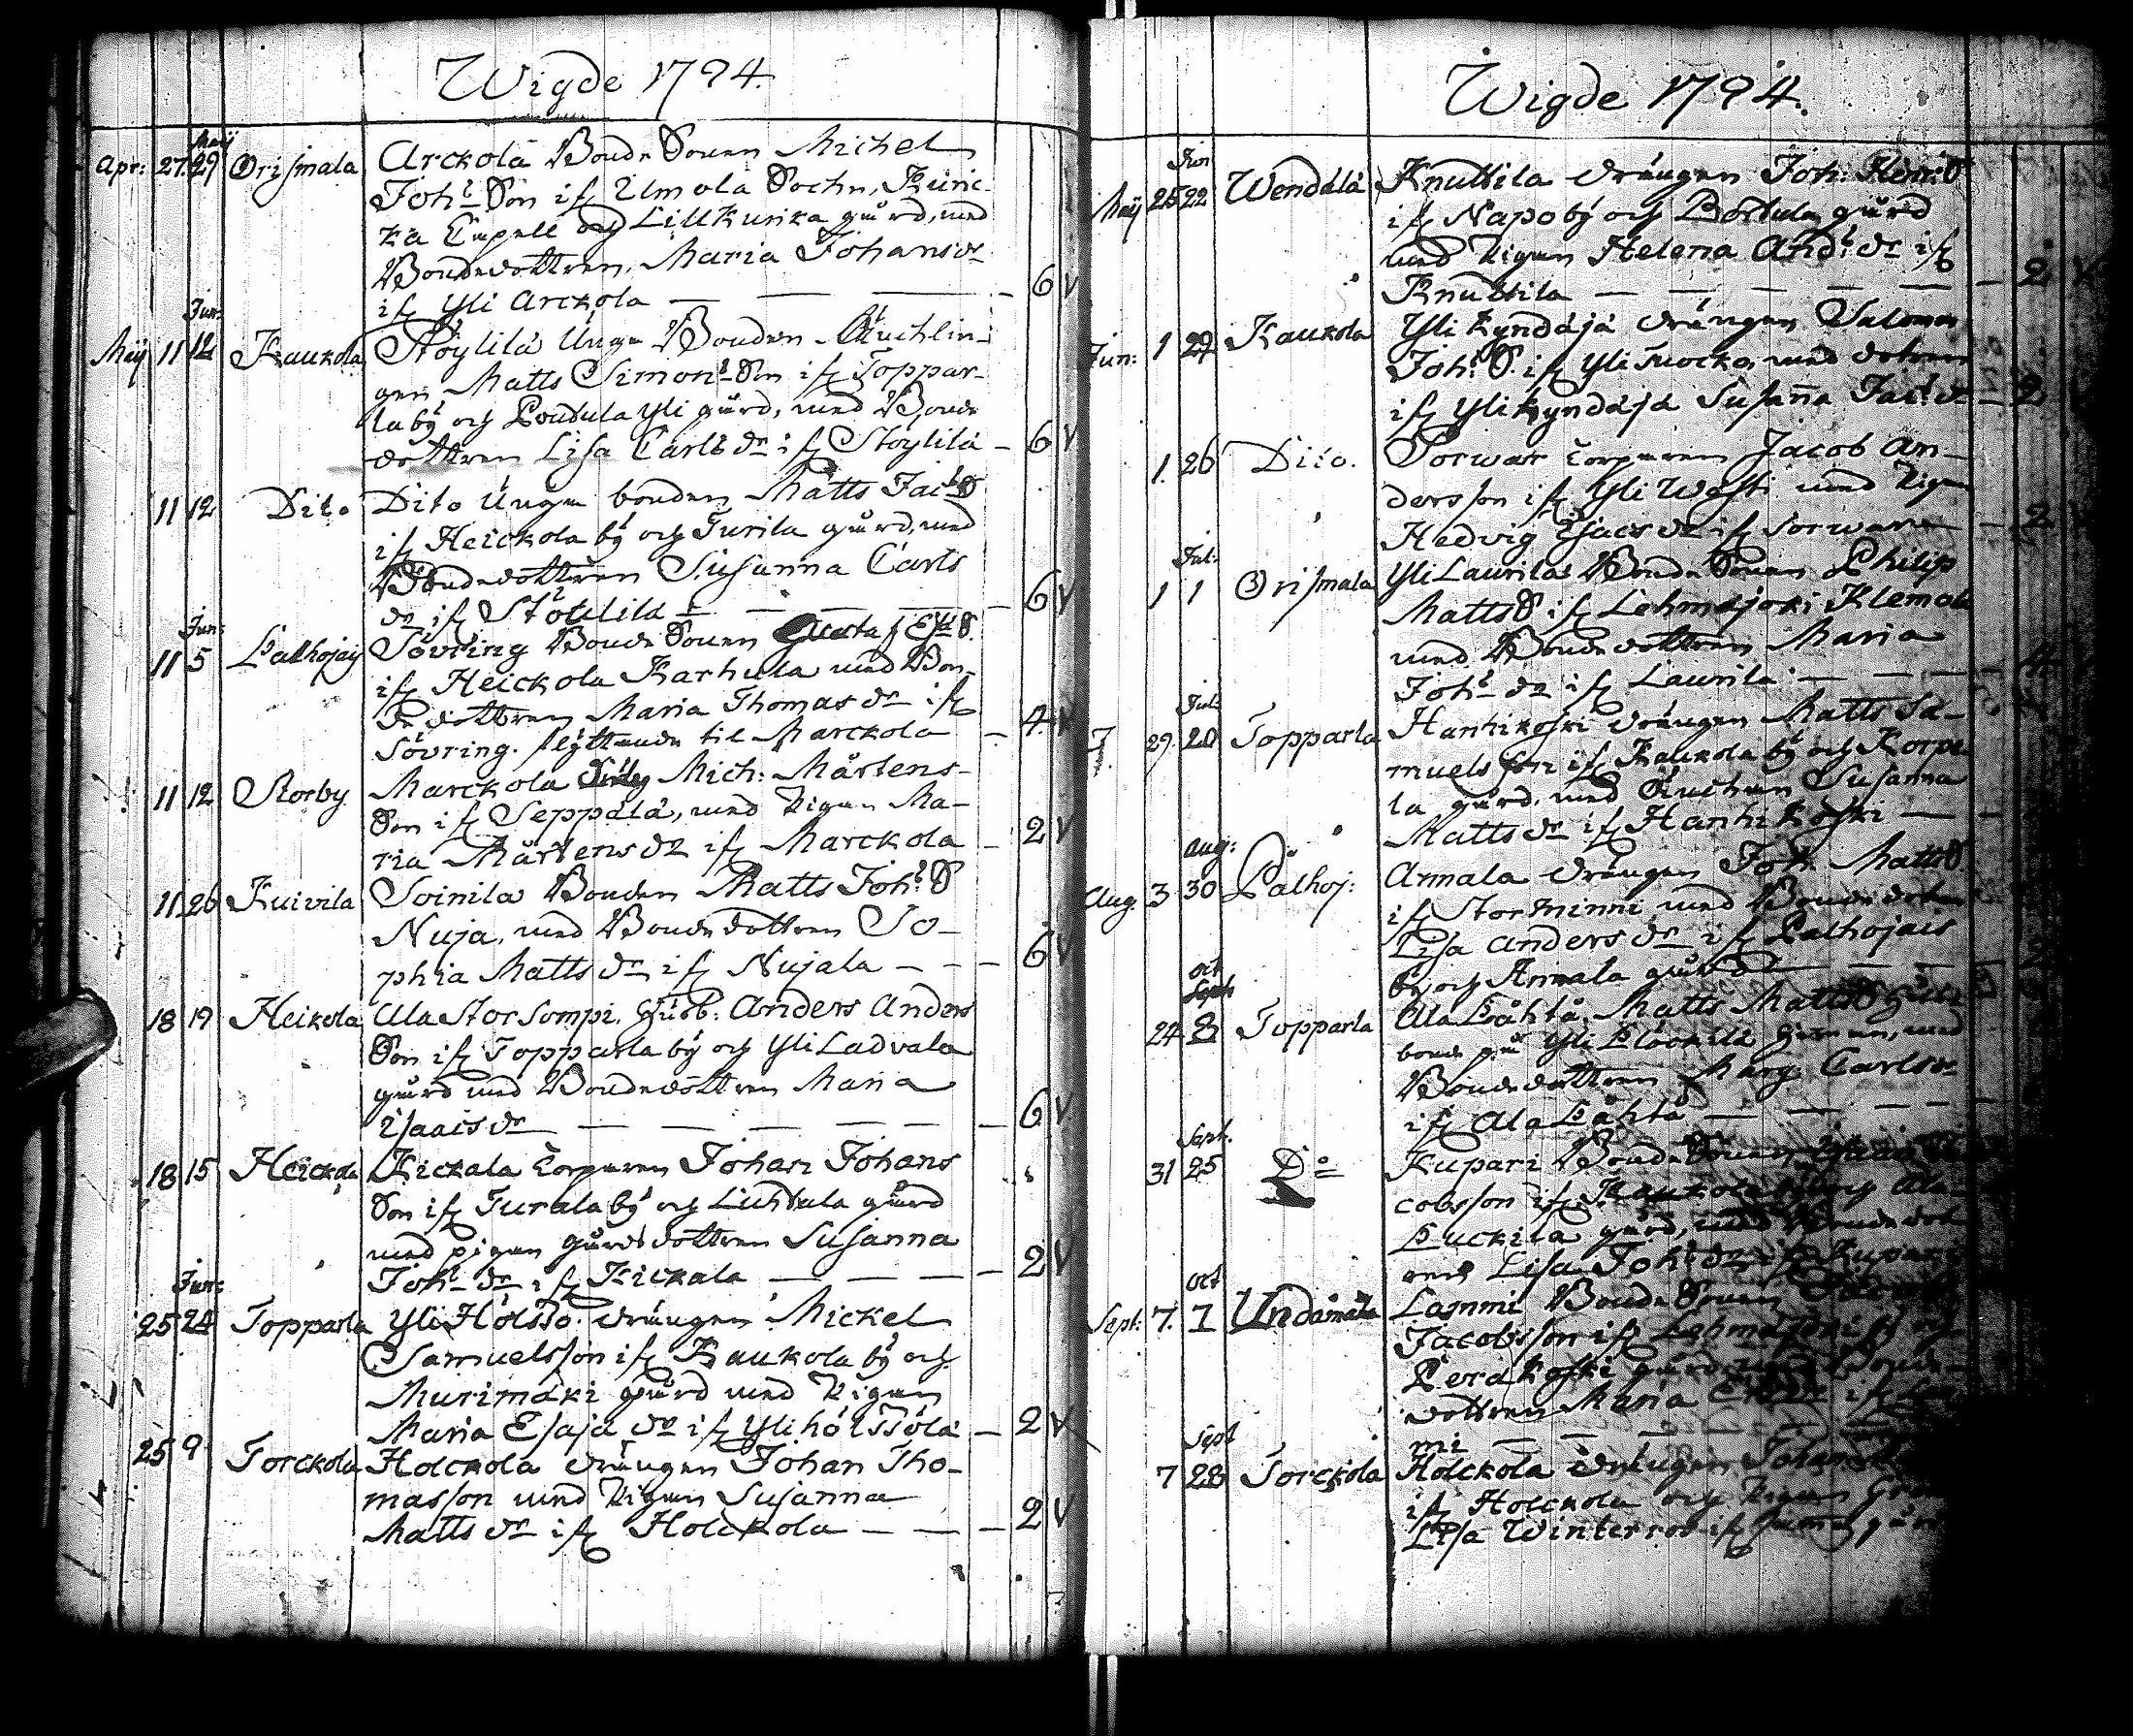 Wigde 1794.
Apr: 27. Maij 29 Orismala Arckola Bonde Sonen Michel
Joh:s Son ifr Ilmola Sochn, Kuric-
ka Capell och Lillkurika gård, med
Bondedottren Maria Johansdr
ifr Yli Arckola — — — 6 V
Maij 11 Jun: 12 Kaukola Stöylilä Unge Bonden Änchlin-
gen Matts Simons Son ifr Toppar-
la bÿ och Pondula Yli gård, med Bonde
dottren Lisa Carls dr ifr Stöylilä - 6 V
11 12 Dito Dito Unge bonden Matts Jac:s S
ifr Heickola bÿ och Turila gård, med
Bondedottren Susanna Carls
dr ifr Stöylilä — — — 6 V
11 Jun: 5 Palhojaij Sövring Bonde Sonen Gustaf Es: S.
ifr Heickola Karhula med Bon-
dedottren Maria Thomas dr ifr
Sövring. flyttande til Marckola - 4. V
11 12 Storby Marckola Mich: Mårtens-
Son ifr Seppälä, med Pigan Ma-
ria Mårtens dr ifr Marckola - 2 V
11 26 Kuivila Soinila Bonden Matts Joh:s S
Nuja, med Bondedottren So-
phia Matts dr ifr Nujala - - - 6 V
18 19 Heikola Ala Storsompi. Husb: Anders Anders
Son ifr Topparla bÿ och Yli Ladvala
gård med Bondedottren Maria
Isaacs dr — — — — - 6 V
18 15 Heickola Kickala Torparen Johan Johans
Son ifr Turala bÿ och Luhtala gård
med pigan gårdsdottren Susanna
Joh:s dr ifr Kickala — — — - 2 V
25 Jun: 24 Topparla Yli Hölsso. drängen Mickel
Samuelsson ifr Kaukola bÿ och
Murimäki gård med Pigan
Maria Esaja dr ifr Yli hölssölä - 2 V
25 9 Torckola Holckola drängen Johan Tho-
masson med Pigan Susanna
Matts dr ifr Holckola — — - 2 V
Wigde 1794.
Maij 25 Jun 22 Wendälä Knuttila drängen Joh: Henr: S
ifr Napo bÿ och Bertula gård
med Pigan Helena And:s dr ifr
Knuttila — — — — — - 2 V
Jun: 1 29 Kaukola Yli Kyndäjä drängen Salomon
Joh:s S. ifr Yli Tuocko med dotren
ifr Yli Kyndäjä Susanna Jac:s dr - 2
1. 26 Dito. Sorwar Torparen Jacob An-
dersson ifr Yli Wasti med Pigan
Hedvig Esacs dr ifr Sorwar — - 2
1 Jul: 1 Orismala Yli Laurila Bonde Sonen Philip
Matts S ifr Lehmäjoki Klemola
med Bondedottren Maria
Joh:s dr ifr Laurila — — — 4
29. Jul: 20 Topparla Hantikoski drängen Matts Sa-
muelsson ifr Kaukola bÿ och Korpe-
la gård. med Änckan Susanna
Matts dr ifr Hantikoski — —
Aug. 3 Aug: 30 Pälhoj: Annala drängen Joh. Matts S
ifr Storminni med Bondedotren
Lisa Anders dr ifr Palhojais
bÿ och Annala gård — — —
24 Oct 8 Topparla Ala Påhtå, Matts Matts S
bonde på Yli Plöckilä hemman, med
Bondedottren Marg: Carls dr
ifr Ala Påhtå — — — —
31 Sept. 25 D:o Kupari Bonde Sonen
cobsson ifr Kaukola bÿ och Ala
Puckila gård, med Bondedot
ren Lisa Joh:s dr ifr Kupari
Sept: 7. Oct 1 Undamala Lammi Bonde Sonen
Jacobsson ifr Lehmäjoki bÿ och
Peräkoski gård med Bonde-
dottren Maria dr ifr Lam
mi — — — —
7 Sept 28 Torckola Holckola drängen Johan
ifr Holckola och Pigan
Lisa Winterros ifr gård